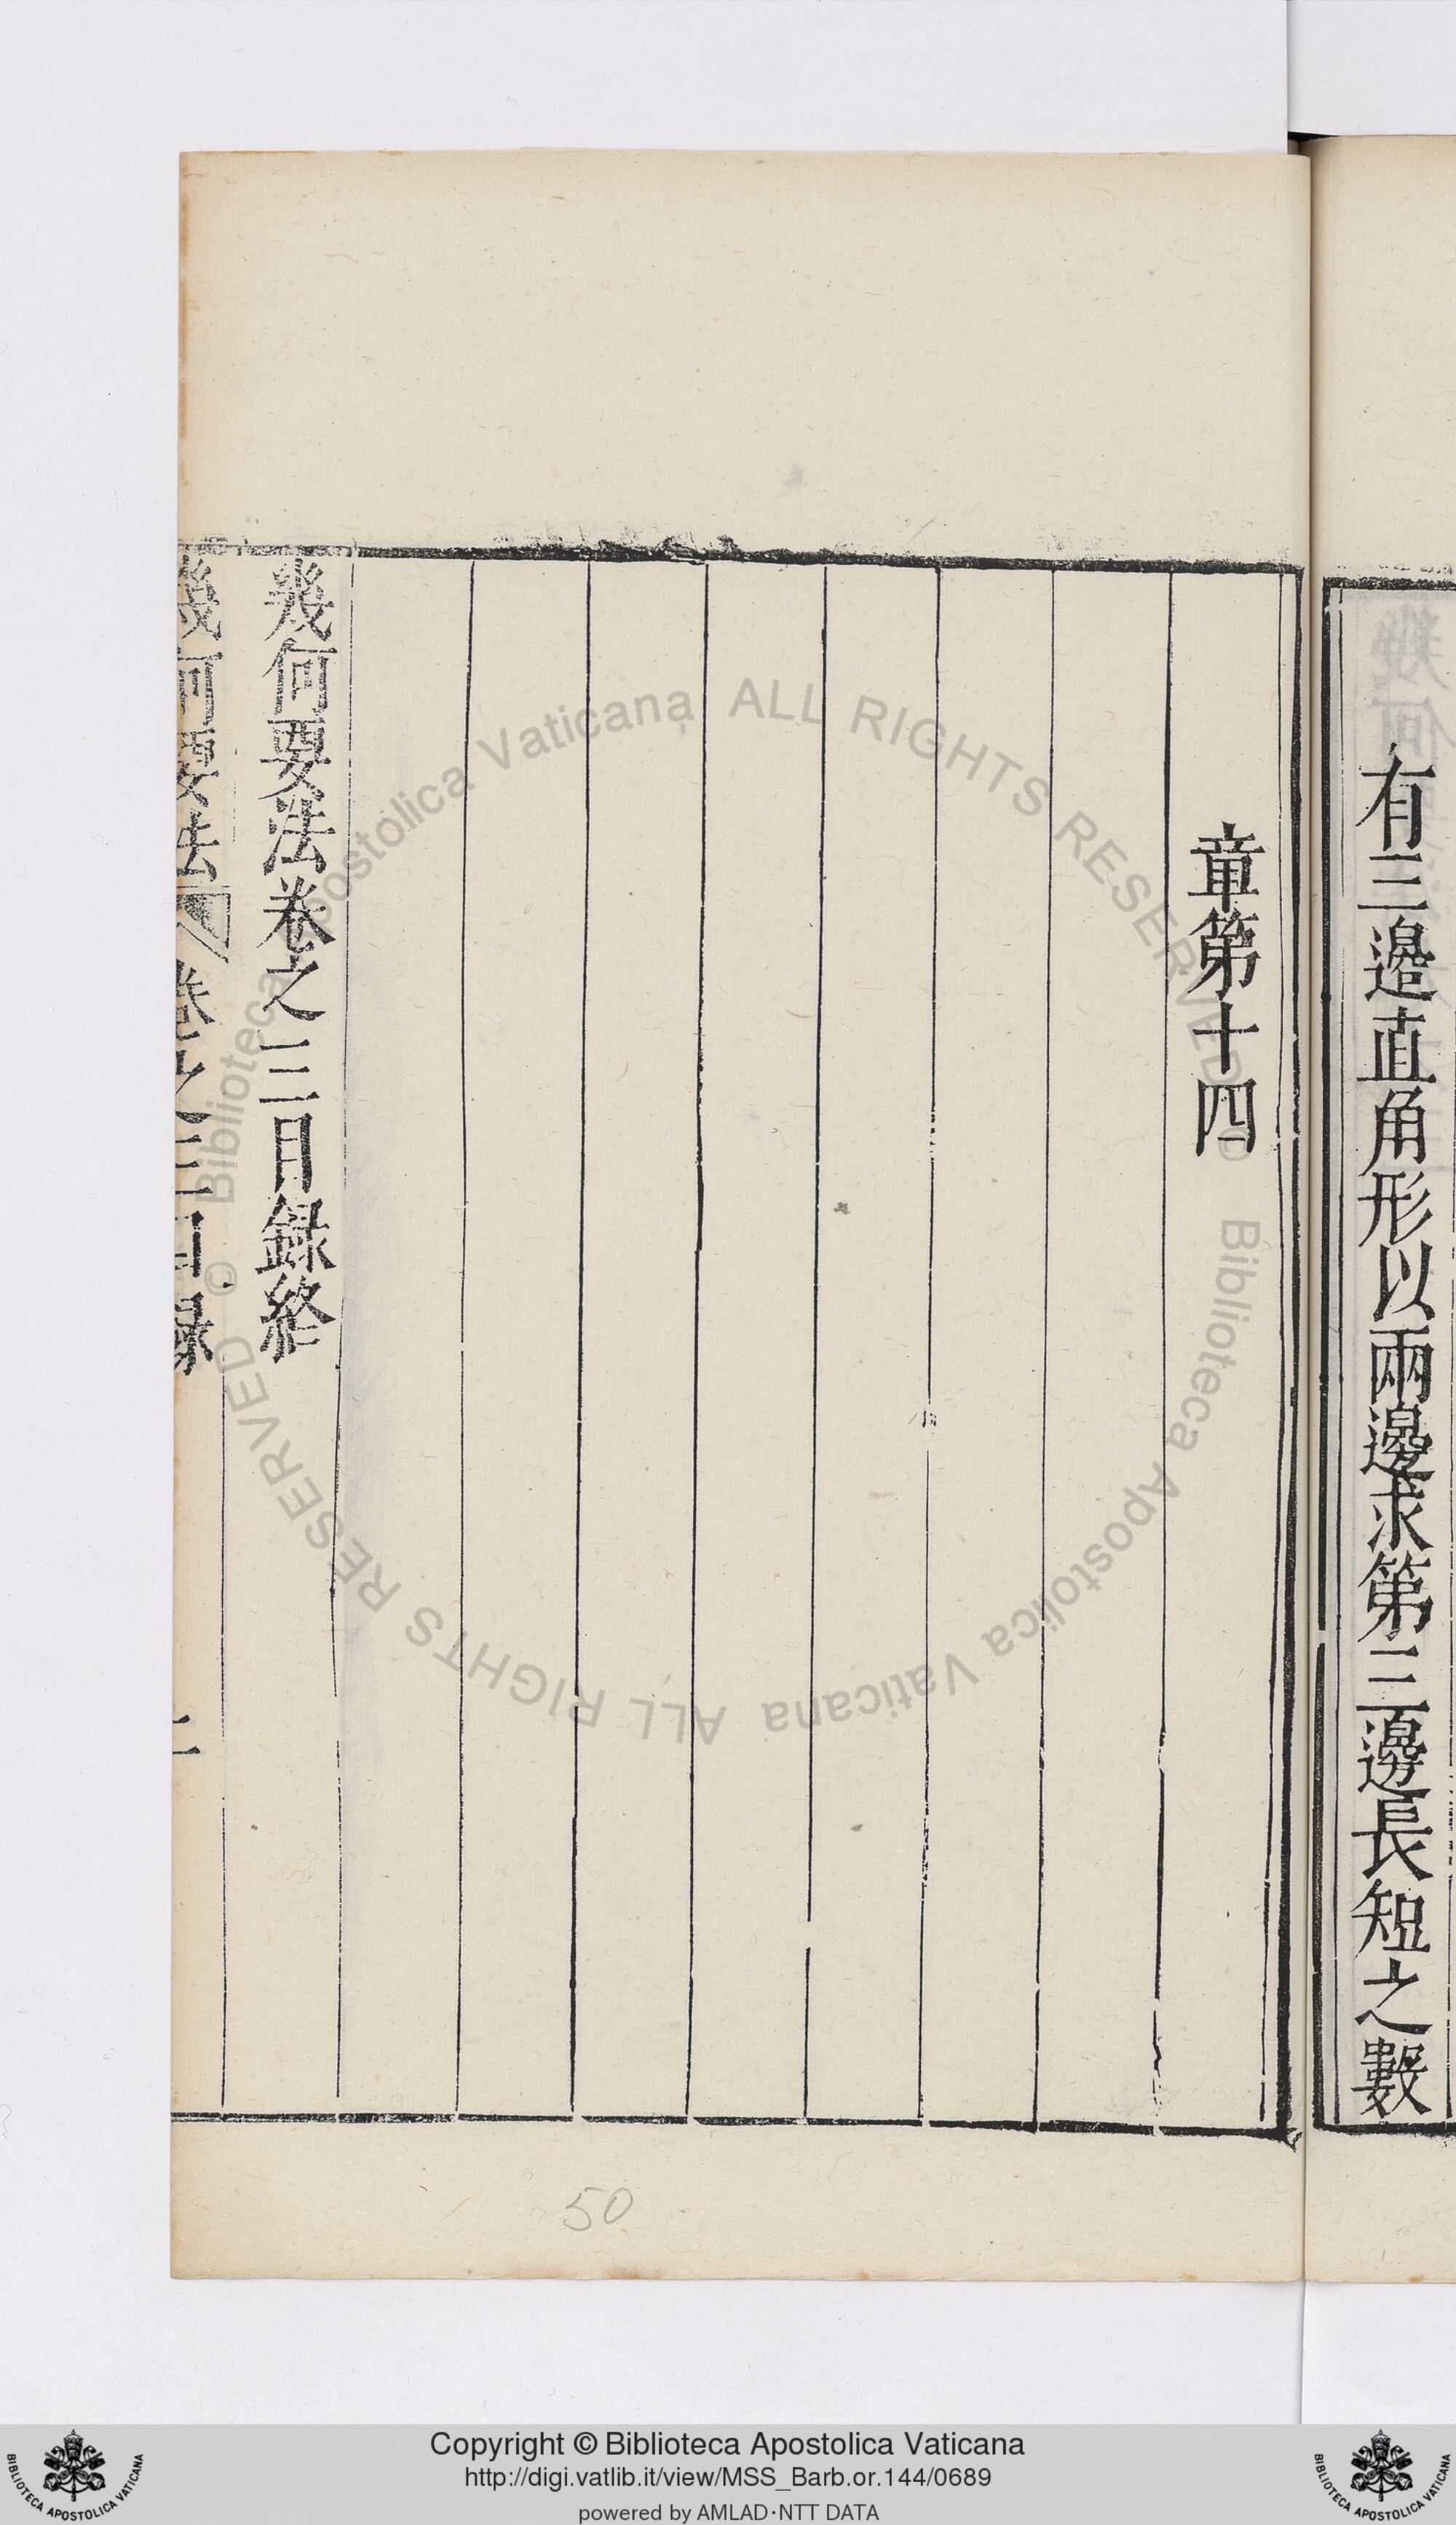 有三邉直角形以兩邊求第三邊長短之數
章第十四
幾何要法卷之三目録終
幾何要法 卷之三目録
二
50
© Biblioteca Apostolica Vaticana ALL RIGHTS RESERVED © Biblioteca Apostolica Vaticana ALL RIGHTS RESERVED
Copyright © Biblioteca Apostolica Vaticana
http://digi.vatlib.it/view/MSS_Barb.or.144/0689
powered by AMLAD·NTT DATA
BIBLIOTECA APOSTOLICA VATICANA
BIBLIOTECA APOSTOLICA VATICANA